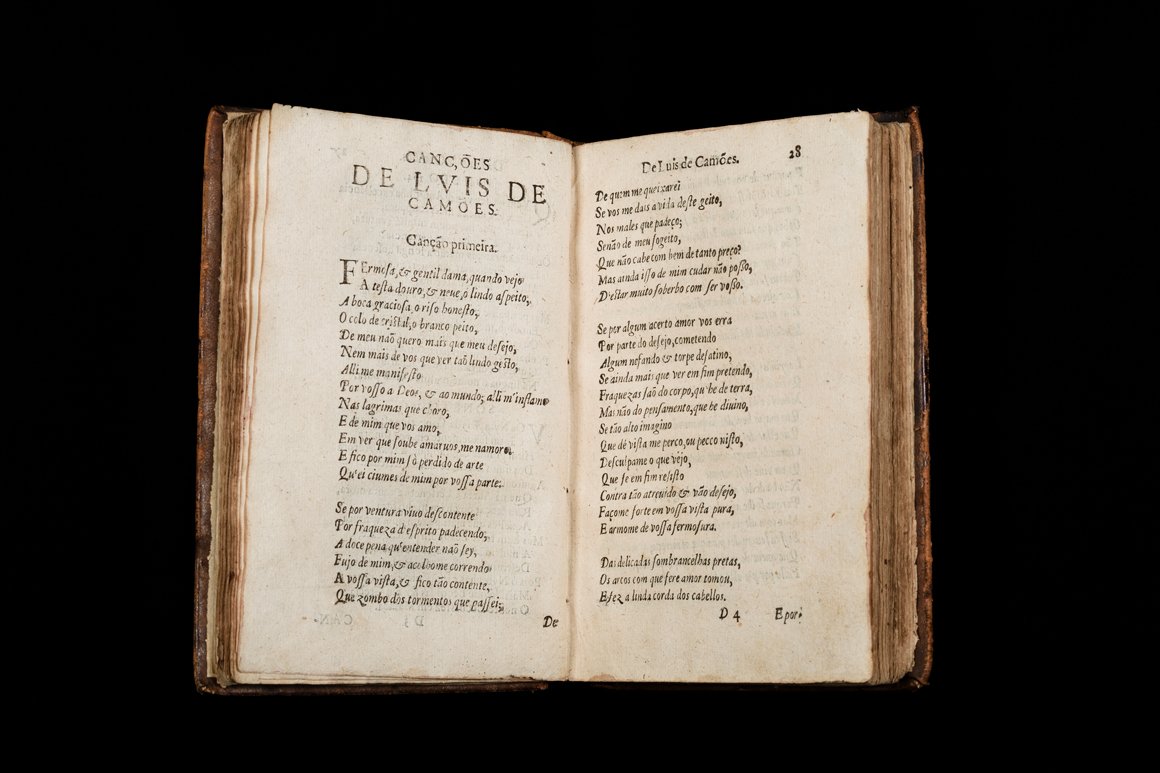 CANÇÕES
DE LVIS DE
CAMÕES.
Canção primeira.
FErmosa, & gentil dama, quando vejo
A testa douro, & neue, o lindo aspeito,
A boca graciosa, o riso honesto,
O colo de cristal, o branco peito,
De meu naõ quero mais que meu desejo,
Nem mais de vos que ver taõ lindo gesto,
Alli me manifesto
Por vosso a Deos, & ao mundo; alli m'inflamo
Nas lagrimas que choro,
E de mim que vos amo,
Em ver que soube amaruos, me namoro,
E fico por mim sò perdido de arte
Qu'ei ciumes de mim por vossa parte.
Se por ventura viuo descontente
Por fraqueza d'esprito padecendo,
A doce pena qu'entender naõ sey,
Fujo de mim, & acolhome correndo
A vossa vista, & fico tão contente,
Que zombo dos tormentos que passei;
De
De Luis de Camões.
28
De quem me queixarei
Se vos me dais a vida deste geito,
Nos males que padeço;
Senão de meu sogeito,
Que não cabe com bem de tanto preço?
Mas ainda isso de mim cudar não posso,
D'estar muito soberbo com ser vosso.
Se por algum acerto amor vos erra
Por parte do desejo, cometendo
Algum nefando & torpe desatino,
Se ainda mais que ver em fim pretendo,
Fraquezas saõ do corpo, qu'he de terra,
Mas não do pensamento, que he divino,
Se tão alto imagino
Que dê vista me perco, ou pecco nisto,
Desculpame o que vejo,
Que se em fim resisto
Contra tão atreuido & vão desejo,
Façome forte em vossa vista pura,
E armome de vossa fermosura.
Das delicadas sombrancelhas pretas,
Os arcos com que fere amor tomou,
E fez a linda corda dos cabellos.
D 4
E por